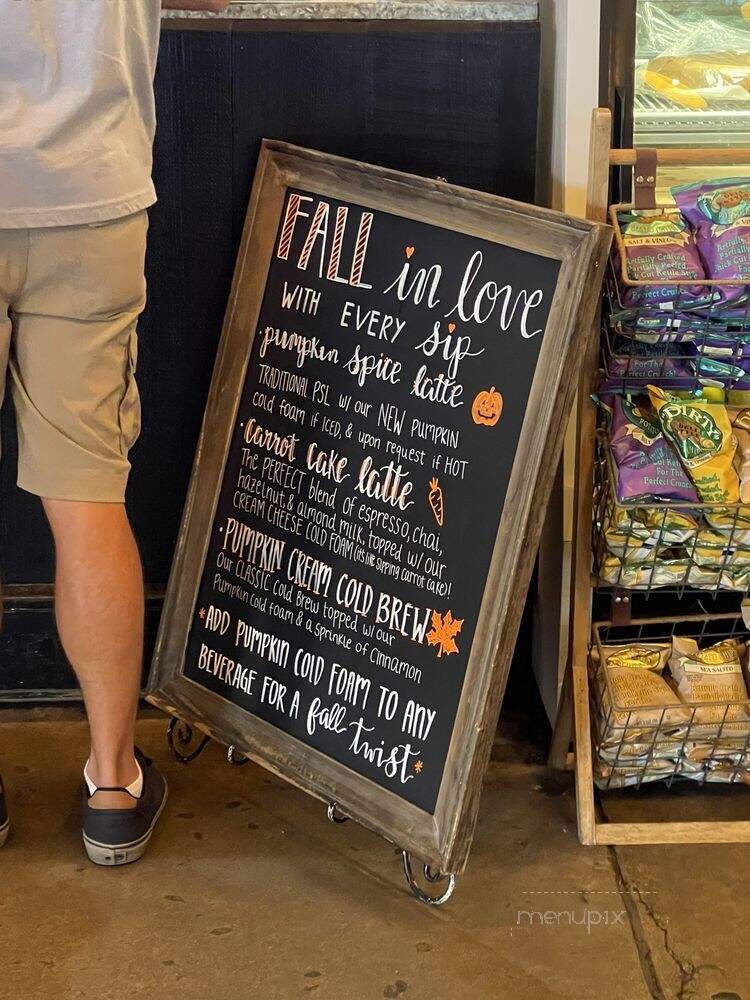 FALL in love
WITH EVERY sip
· pumpkin spice latte
TRADITIONAL PSL w/ our NEW PUMPKIN
cold foam if ICED, & upon request if HOT
· carrot cake latte
The PERFECT blend of espresso, chai,
hazelnut, & almond milk, topped w/ our
CREAM CHEESE COLD FOAM (its like sipping carrot cake)!
· PUMPKIN CREAM COLD BREW
Our CLASSIC Cold Brew topped w/ our
Pumpkin Cold foam & a sprinkle of Cinnamon
*ADD PUMPKIN COLD FOAM TO ANY
BEVERAGE FOR A fall twist*
SALT & VINEGAR
Artfully Crafted
Partially Peeled
Thick Cut Kettle
Perfect Crunch
DIRTY
SEA SALTED
menupix